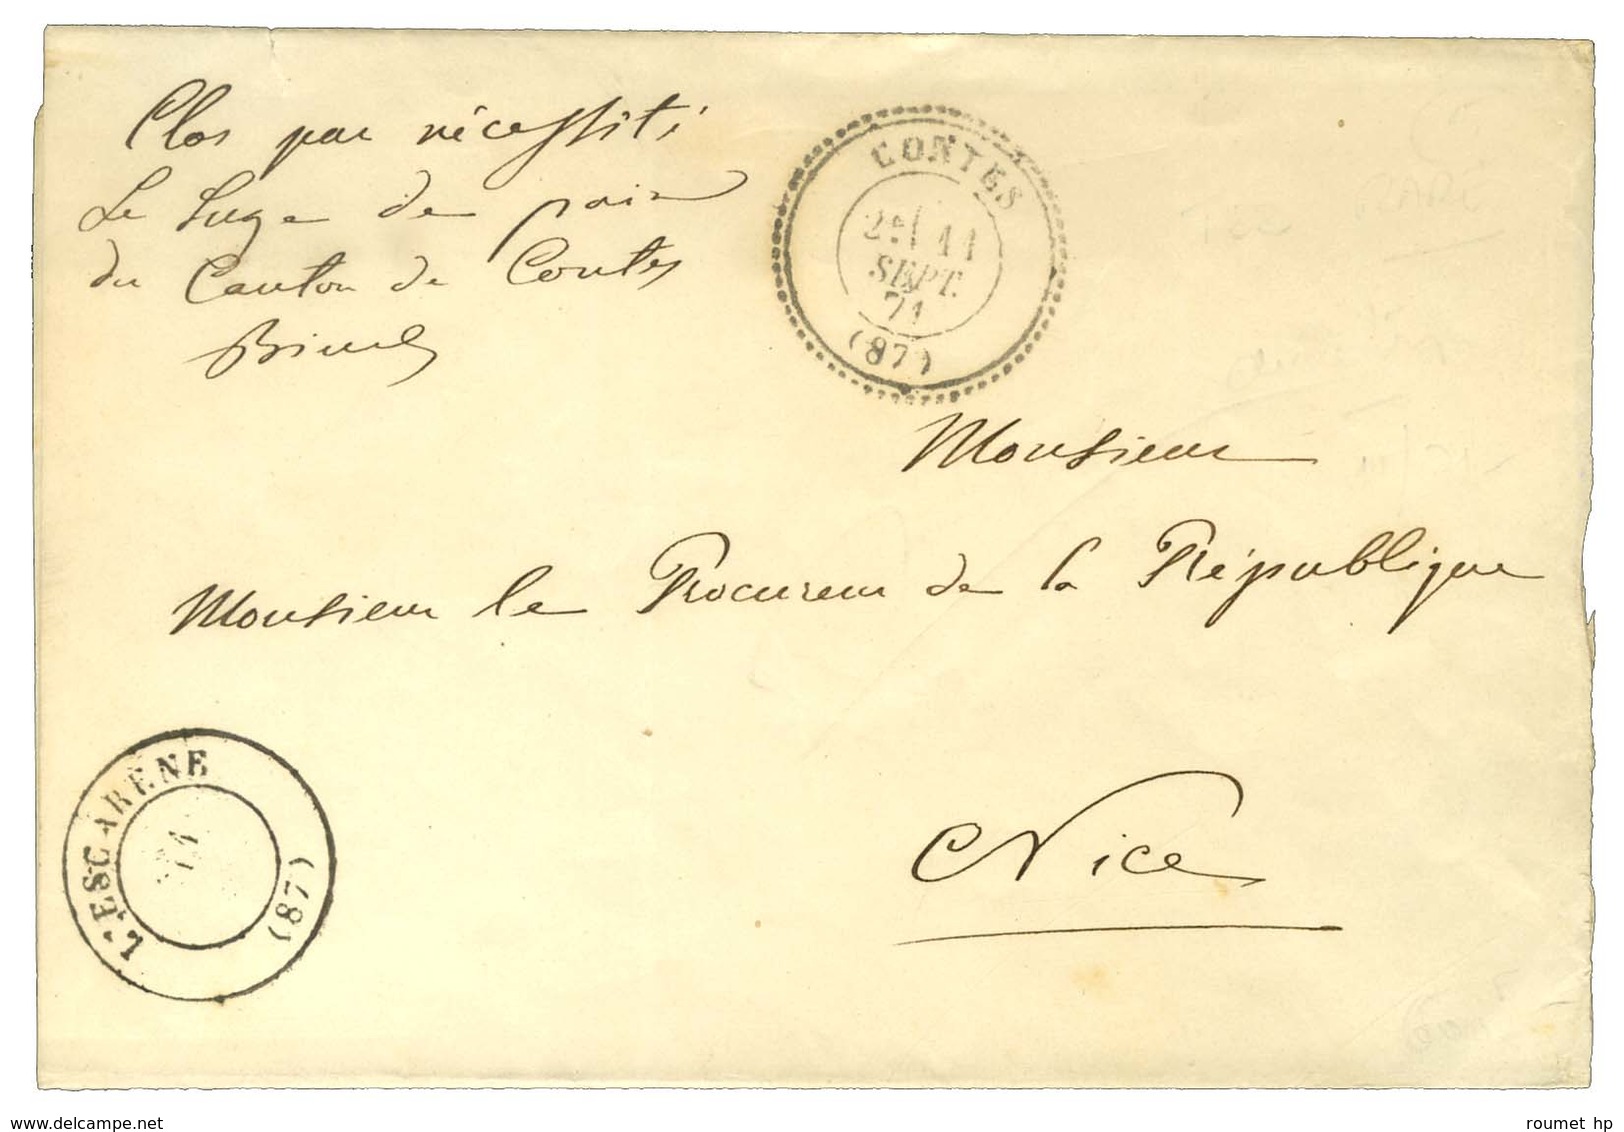 Clos par nécessité
Le Juge de paix
du Canton de Contes
CONTES
2e/ 11
SEPT.
71
(87)
Monsieur
Monsieur le Procureur de la République
Nice
L'ESCARÈNE
(87)
delcampe.net
roumet hp